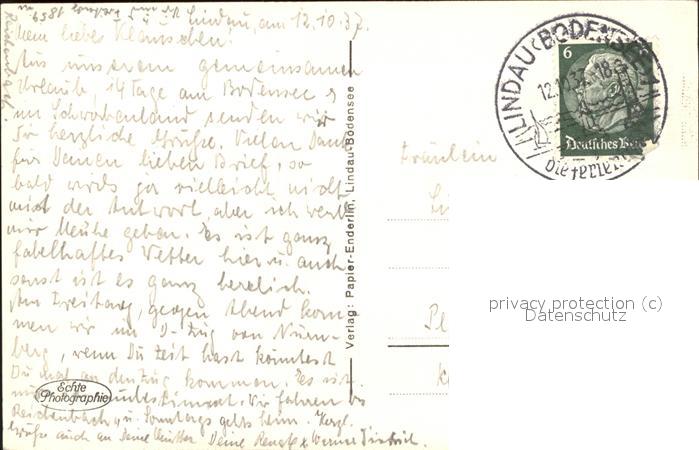 Lindau, am 12.10.37.
Mein liebes Klauschen!
Aus unserem gemeinsamen
Urlaub, 14 Tage am Bodensee u
im Schwabenland senden wir
Dir herzliche Grüße. Vielen Dank
für Deinen lieben Brief, so
bald wirds ja vielleicht nicht
mit der Antwort, aber ich werde
mir Mühe geben. Es ist ganz
fabelhaftes Wetter hier u. auch
sonst ist es ganz herrlich.
Am Freitag, gegen Abend kom
men wir im D-Zug von Nürn-
berg, wenn Du Zeit hast könntest
Du mal an den Zug kommen. Es ist
Wir fahren bis
Reichenbach u. Sonntags gehts heim. Herzl.
Grüße auch an Deine Mutter Deine Renate u Werner
Reichenbach
Echte
Photographie
Verlag: Papier-Enderlin, Lindau-Bodensee
LINDAU (BODENSEE)
12.10.37.-18
6
Deutsches Reich
Fräulein
privacy protection (c)
Datenschutz